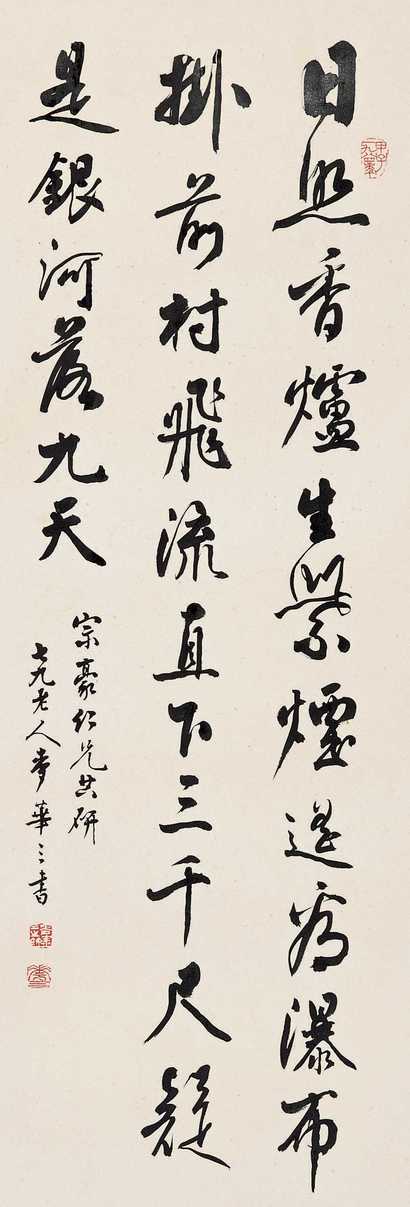 日照香爐生紫煙遙看瀑布
掛前村飛流直下三千尺疑
是銀河落九天
宗豪仁兄共研
七九老人麥華三書